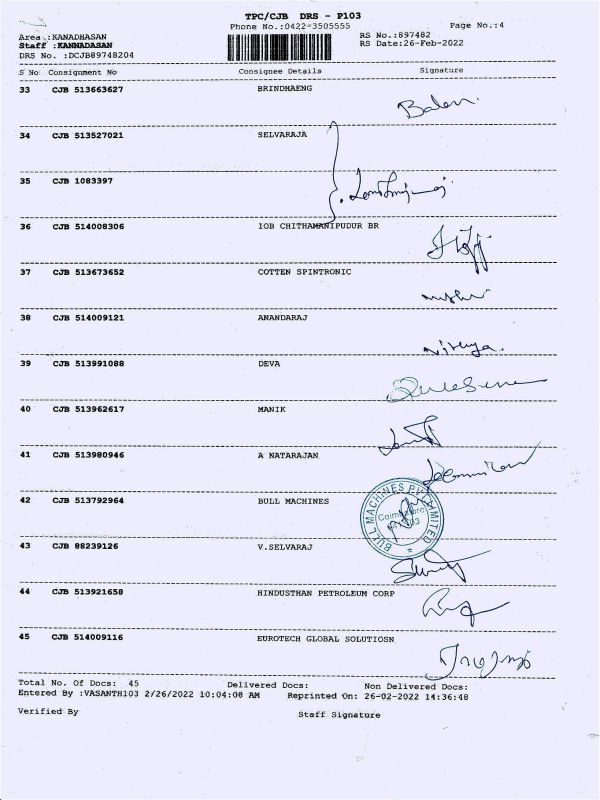 TPC/CJB DRS - P103
Phone No.:0422-3505555 Page No.:4
Area :KANADHASAN RS No.:897482
Staff :KANNADASAN RS Date:26-Feb-2022
DRS No. :DCJB89748204
S No Consignment No Consignee Details Signature
33 CJB 513663627 BRINDHAENG
34 CJB 513527021 SELVARAJA
35 CJB 1083397
36 CJB 514008306 IOB CHITHAMANIPUDUR BR
37 CJB 513673652 COTTEN SPINTRONIC
38 CJB 514009121 ANANDARAJ
39 CJB 513991088 DEVA
40 CJB 513962617 MANIK
41 CJB 513980946 A NATARAJAN
42 CJB 513792964 BULL MACHINES
BULL MACHINES PVT LIMITED
Coimbatore
43 CJB 88239126 V.SELVARAJ
44 CJB 513921658 HINDUSTHAN PETROLEUM CORP
45 CJB 514009116 EUROTECH GLOBAL SOLUTIOSN
Total No. Of Docs: 45 Delivered Docs: Non Delivered Docs:
Entered By :VASANTH103 2/26/2022 10:04:08 AM Reprinted On: 26-02-2022 14:36:48
Verified By Staff Signature